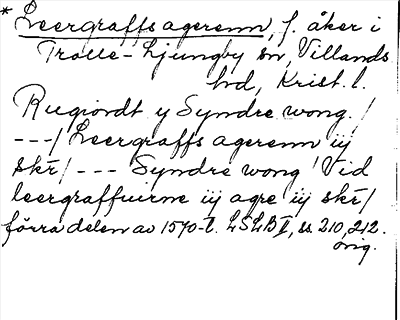 * Leergraffs agerenn, f. åker i
Trolle-Ljungby sn, Villands
hd, Krist. l.
Rugiordt y Syndre wong. /
---/ Leergraffs agerenn iij
skr/ --- Syndre wong / Vid
leergraffuirne iij agre iij skr/
förra delen av 1570-t. LSLB II, ss. 210, 212.
orig.